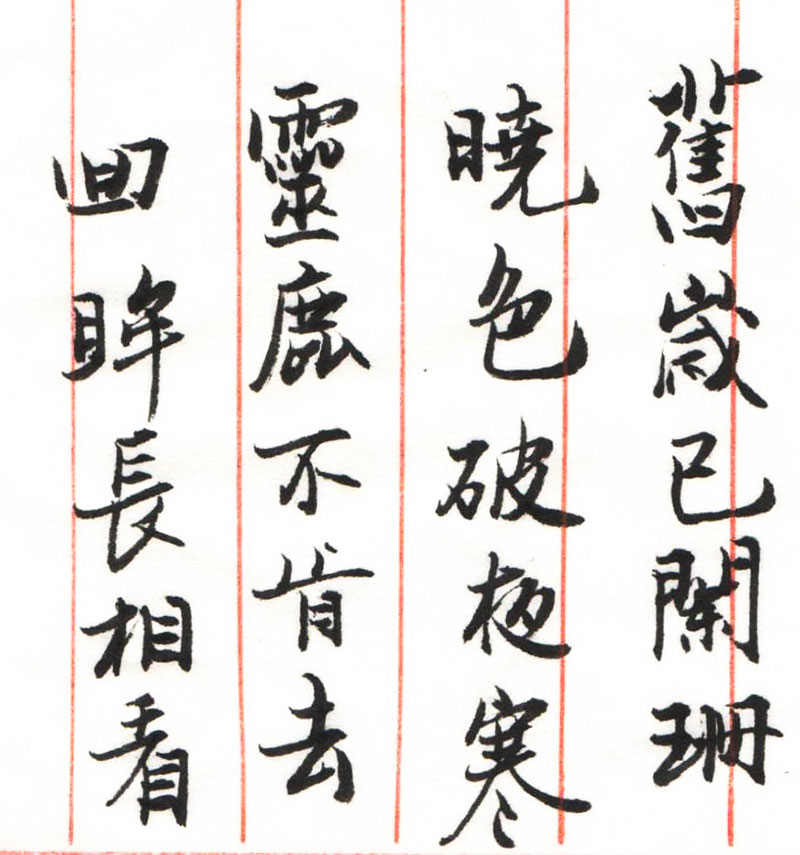 舊歲已闌珊
曉色破極寒
靈鹿不肯去
回眸長相看